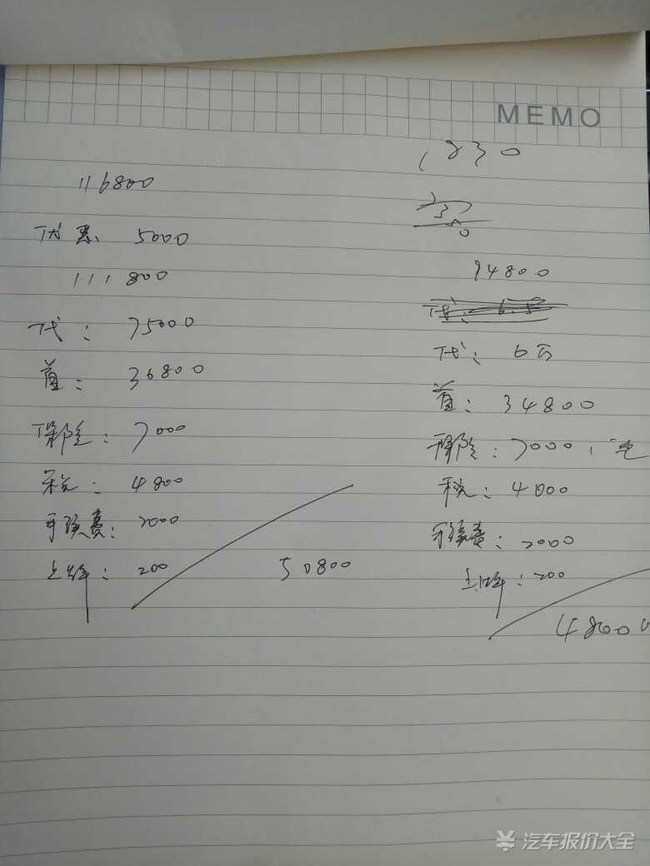 MEMO
116800
优惠 5000
111800
代: 75000
首: 36800
保险: 7000
税: 4800
手续费: 2000
上牌: 200
50800
1830
94800
代: 6万
首: 34800
保险: 7000
税: 4000
手续费: 2000
上牌: 200
48000
汽车报价大全